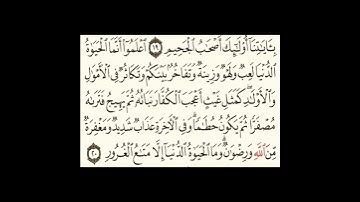 بِـَٔايَٰتِنَآ أُو۟لَٰٓئِكَ أَصْحَٰبُ ٱلْجَحِيمِ ١٩ ٱعْلَمُوٓا۟ أَنَّمَا ٱلْحَيَوٰةُ
ٱلدُّنْيَا لَعِبٌ وَلَهْوٌ وَزِينَةٌ وَتَفَاخُرٌۢ بَيْنَكُمْ وَتَكَاثُرٌ فِى ٱلْأَمْوَٰلِ
وَٱلْأَوْلَٰدِ كَمَثَلِ غَيْثٍ أَعْجَبَ ٱلْكُفَّارَ نَبَاتُهُۥ ثُمَّ يَهِيجُ فَتَرَىٰهُ
مُصْفَرًّا ثُمَّ يَكُونُ حُطَٰمًا وَفِى ٱلْءَاخِرَةِ عَذَابٌ شَدِيدٌ وَمَغْفِرَةٌ
مِّنَ ٱللَّهِ وَرِضْوَٰنٌ وَمَا ٱلْحَيَوٰةُ ٱلدُّنْيَآ إِلَّا مَتَٰعُ ٱلْغُرُورِ ٢٠